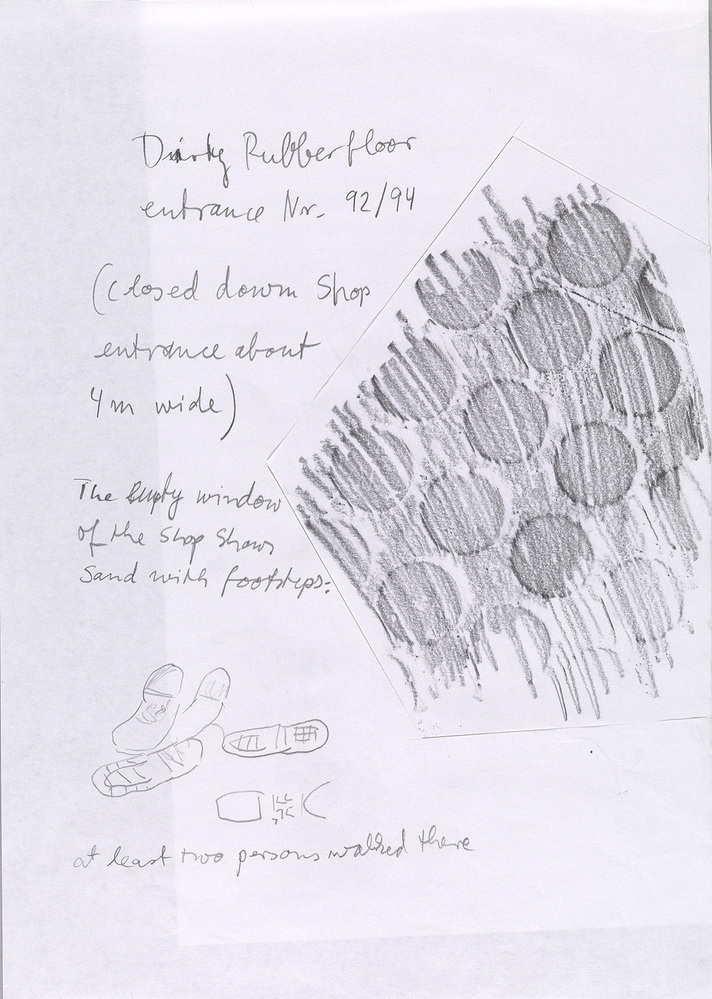 Dirty Rubberfloor
entrance Nr. 92/94
(closed down Shop
entrance about
4m wide)
The Empty window
of the Shop Shows
Sand with footsteps:
at least two persons walked there